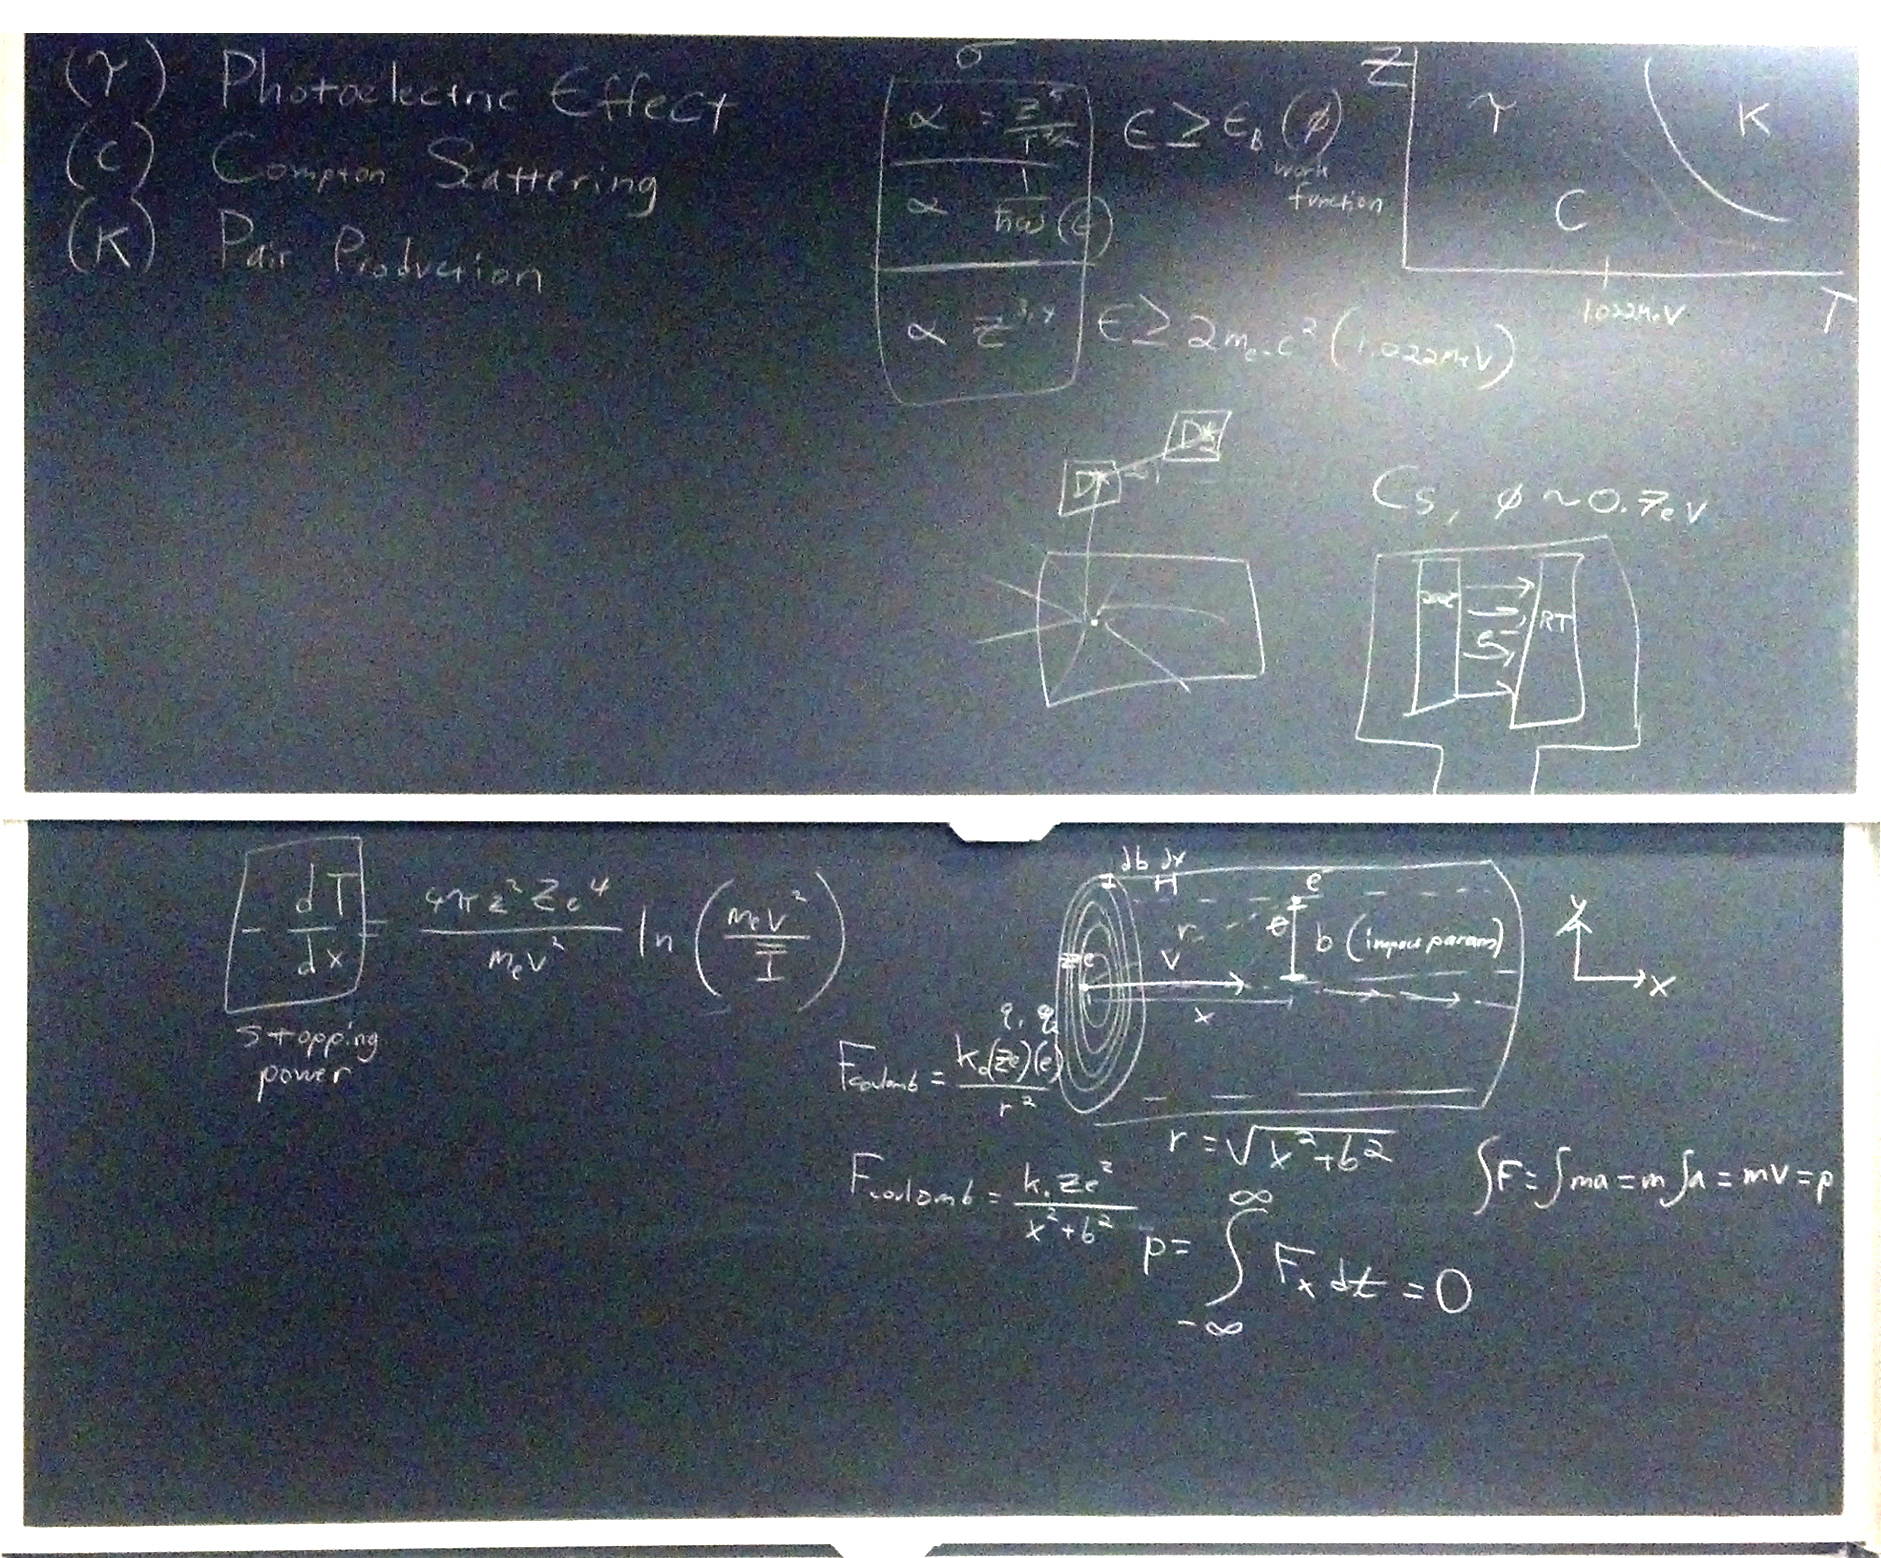 (τ) Photoelectric Effect
(C) Compton Scattering
(K) Pair Production
σ
α = Z⁵
ϵ ≥ ϵ_B (ϕ)
work
function
α 1/ħω (ϵ)
α Z
ϵ ≥ 2m_e-c² (1.022MeV)
Z
τ
K
C
1.022MeV
T
D
D₂
Cs, ϕ ~ 0.7eV
e⁻
RT
- dT/dx = 4πz²Ze⁴/m_ev² ln (m_ev²/Ī)
stopping
power
db dx
e⁻
r
b (impact param)
ze
v
x
y
x
q₁ q₂
F_coulomb = k₀(ze)(e)/r²
r = √x²+b²
F_coulomb = k₀ze²/x²+b²
∫F = ∫ma = m∫a = mv = p
p = ∫_{-∞}^{∞} F_x dt = 0